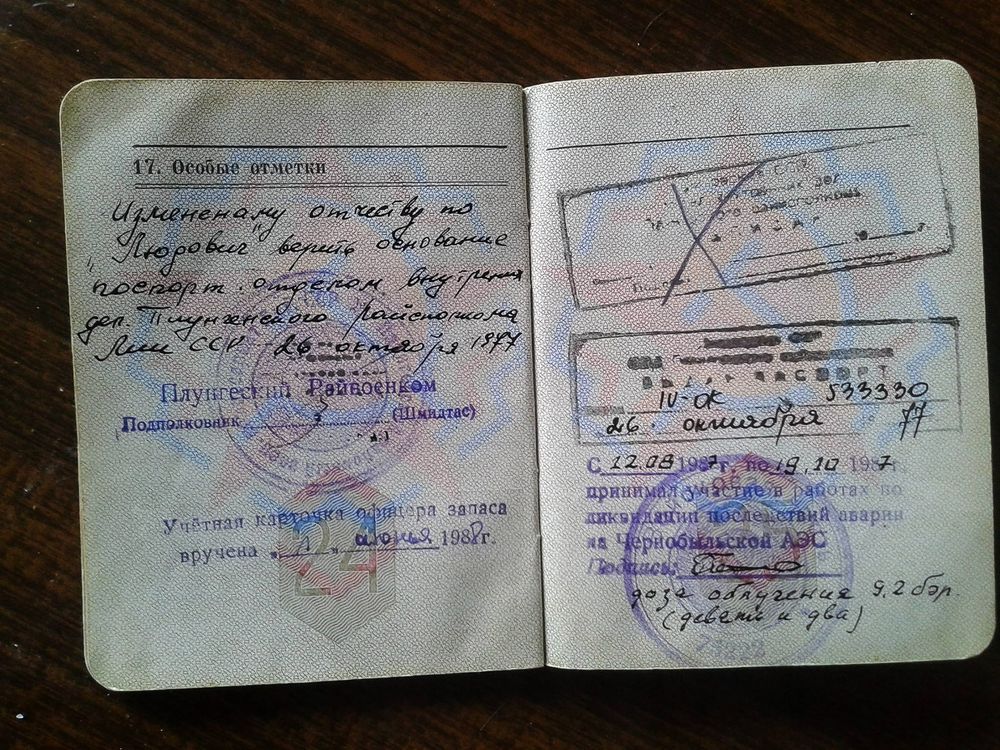 17. Особые отметки
Измененому отчеству по
„Людович" верить основание
поспорт. отделом внутрення
дел. Плунгенского райисполкома
Лит ССР 26 октября 1977
Плунгеский Райвоенком
Подполковник (Шмидтас)
Учётная карточка офицера запаса
вручена „ " 1988г.
ВЫДАН ПАСПОРТ
IV-ОК 533330
26. октября 77
С 12.08 1987 г. по 19.10 1987г.
принимал участие в работах по
ликвидации последствий аварии
на Чернобыльской АЭС
Подпись:
доза облучения 9,2 бэр.
(девять и два)
73222